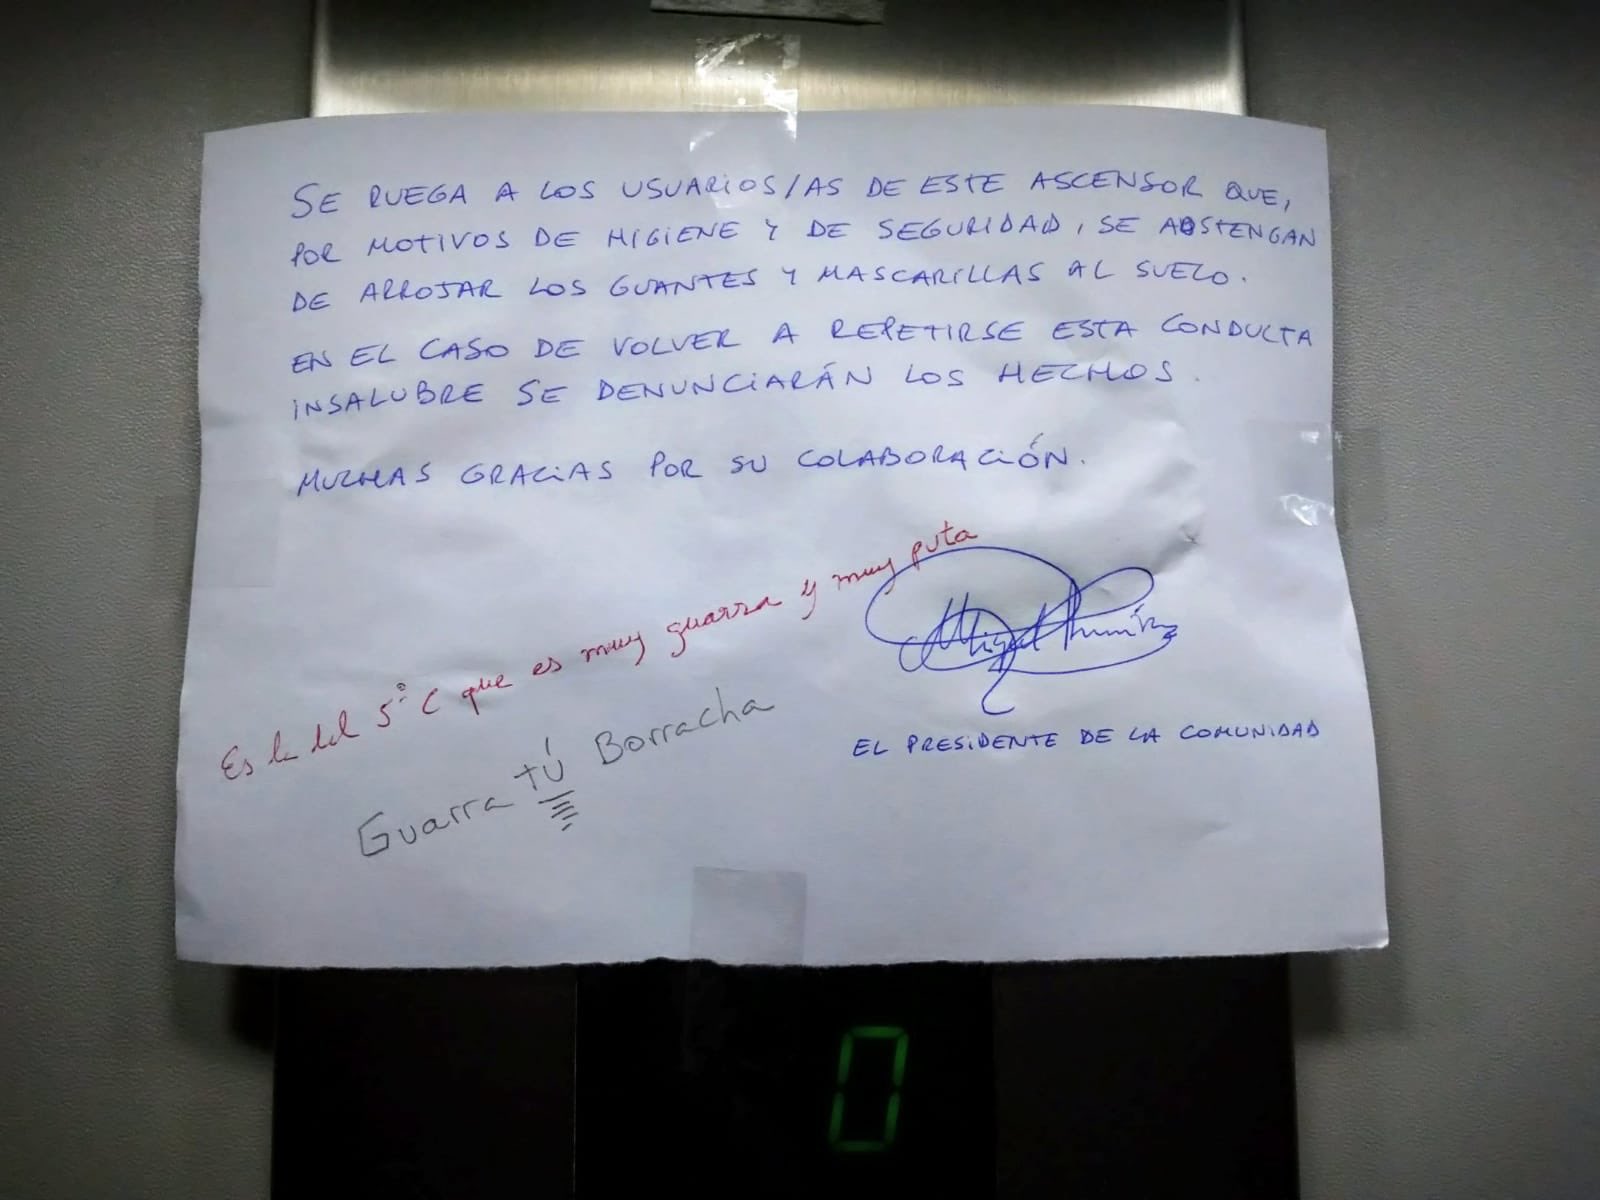 SE RUEGA A LOS USUARIOS/AS DE ESTE ASCENSOR QUE,
POR MOTIVOS DE HIGIENE Y DE SEGURIDAD, SE ABSTENGAN
DE ARROJAR LOS GUANTES Y MASCARILLAS AL SUELO.
EN EL CASO DE VOLVER A REPETIRSE ESTA CONDUCTA
INSALUBRE SE DENUNCIARÁN LOS HECHOS.
MUCHAS GRACIAS POR SU COLABORACIÓN.
Es la del 5º C que es muy guarra y muy puta
Guarra tú Borracha
Miguel Ramírez
EL PRESIDENTE DE LA COMUNIDAD
0